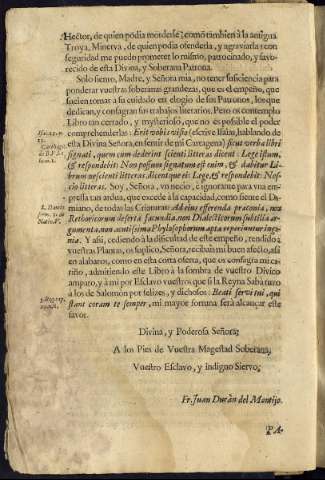 Hector, de quien podia morderle; como tambien à la antigua
Troya, Minerva, de quien podia ofenderla, y agraviarla: con
seguridad me puedo prometer lo mismo, patrocinado, y favo-
recido de esta Divina, y Soberana Patrona.
Solo siento, Madre, y Señora mia, no tener suficiencia para
ponderar vuestras soberanas grandezas, que es el empeño, que
suelen tomar a su cuidado en elogio de sus Patronos, los que
dedican, y consagran sus trabajos literarios. Pero os contemplo
Libro tan cerrado, y mysterioso, que no es posible el poder
comprehenderlas: Erit vobis visio (escrive Isaias, hablando de
esta Divina Señora, en sentir de mi Cartagena) sicut verba libri
signati, quem cum dederint scienti litteras dicent: Lege istum,
& respondebit: Non possum signatum est enim, & dabitur Li-
brum nescienti litteras, dicentque ei: Lege, & respondebit: Nes-
cio litteras. Soy, Señora, un necio, è ignorante para una em-
pressa tan ardua, que excede à la capacidad, como siente el Da-
miano, de todas las Criaturas: Ad eius efferenda præconia, nec
Rethoricorum deserta facundia, non Dialecticorum subtilia ar-
gumenta, non acutissima Phylosophorum apta reperiuntur inge-
nia. Y assi, cediendo à la dificultad de este empeño, rendido à
vuestras Plantas, os suplico, Señora, recibais mi buen afecto, assi
en alabaros, como en esta corta oferta, que os consagra mi ca-
riño, admitiendo este Libro à la sombra de vuestro Divino
amparo, y à mi por Esclavo vuestro; que si la Reyna Sabà tuvo
à los de Salomòn por felizes, y dichosos: Beati servi tui, qui
stant coram te semper, mi mayor fortuna serà alcançar este
favor.
Divina, y Poderosa Señora;
A los Pies de Vuestra Magestad Soberana,
Vuestro Esclavo, y indigno Siervo,
Fr. Juan Duràn del Montijo.
PA-